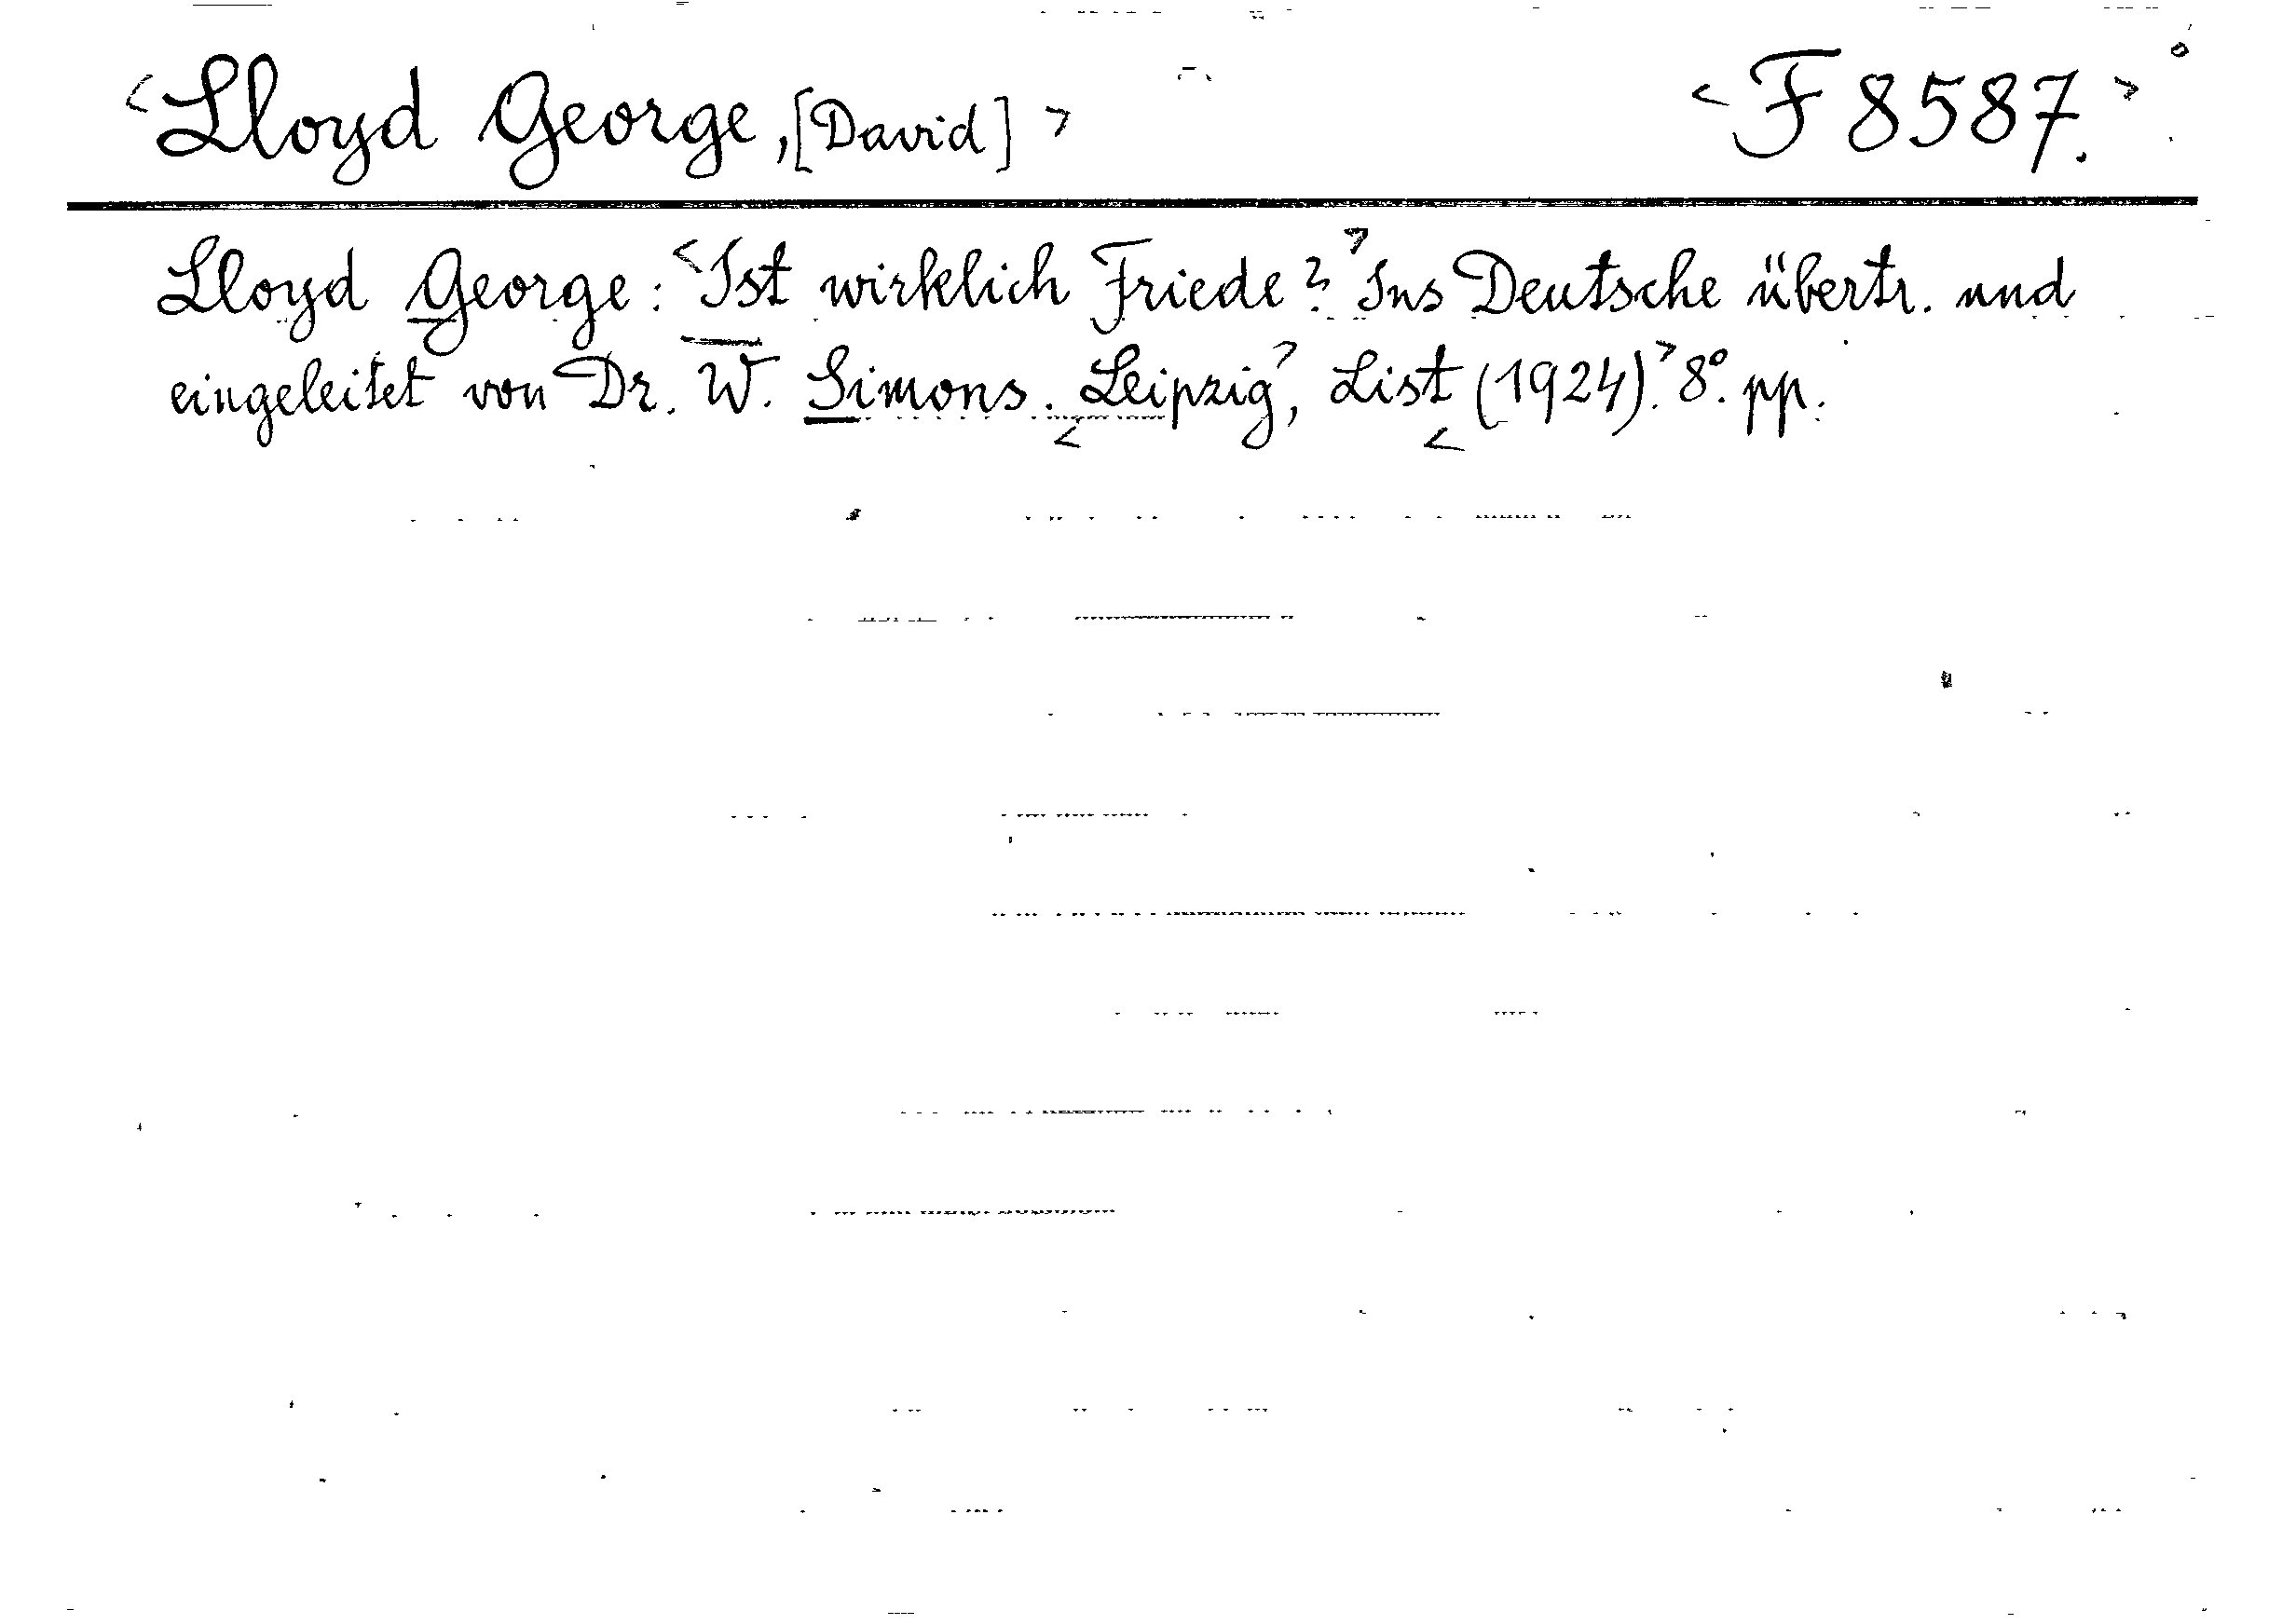 <Lloyd George, [David]> <F 8587.>
Lloyd George: <Ist wirklich Friede?> Ins Deutsche übertr. und
eingeleitet von Dr. W. Simons. <Leipzig>, List <(1924).> 8°. pp.